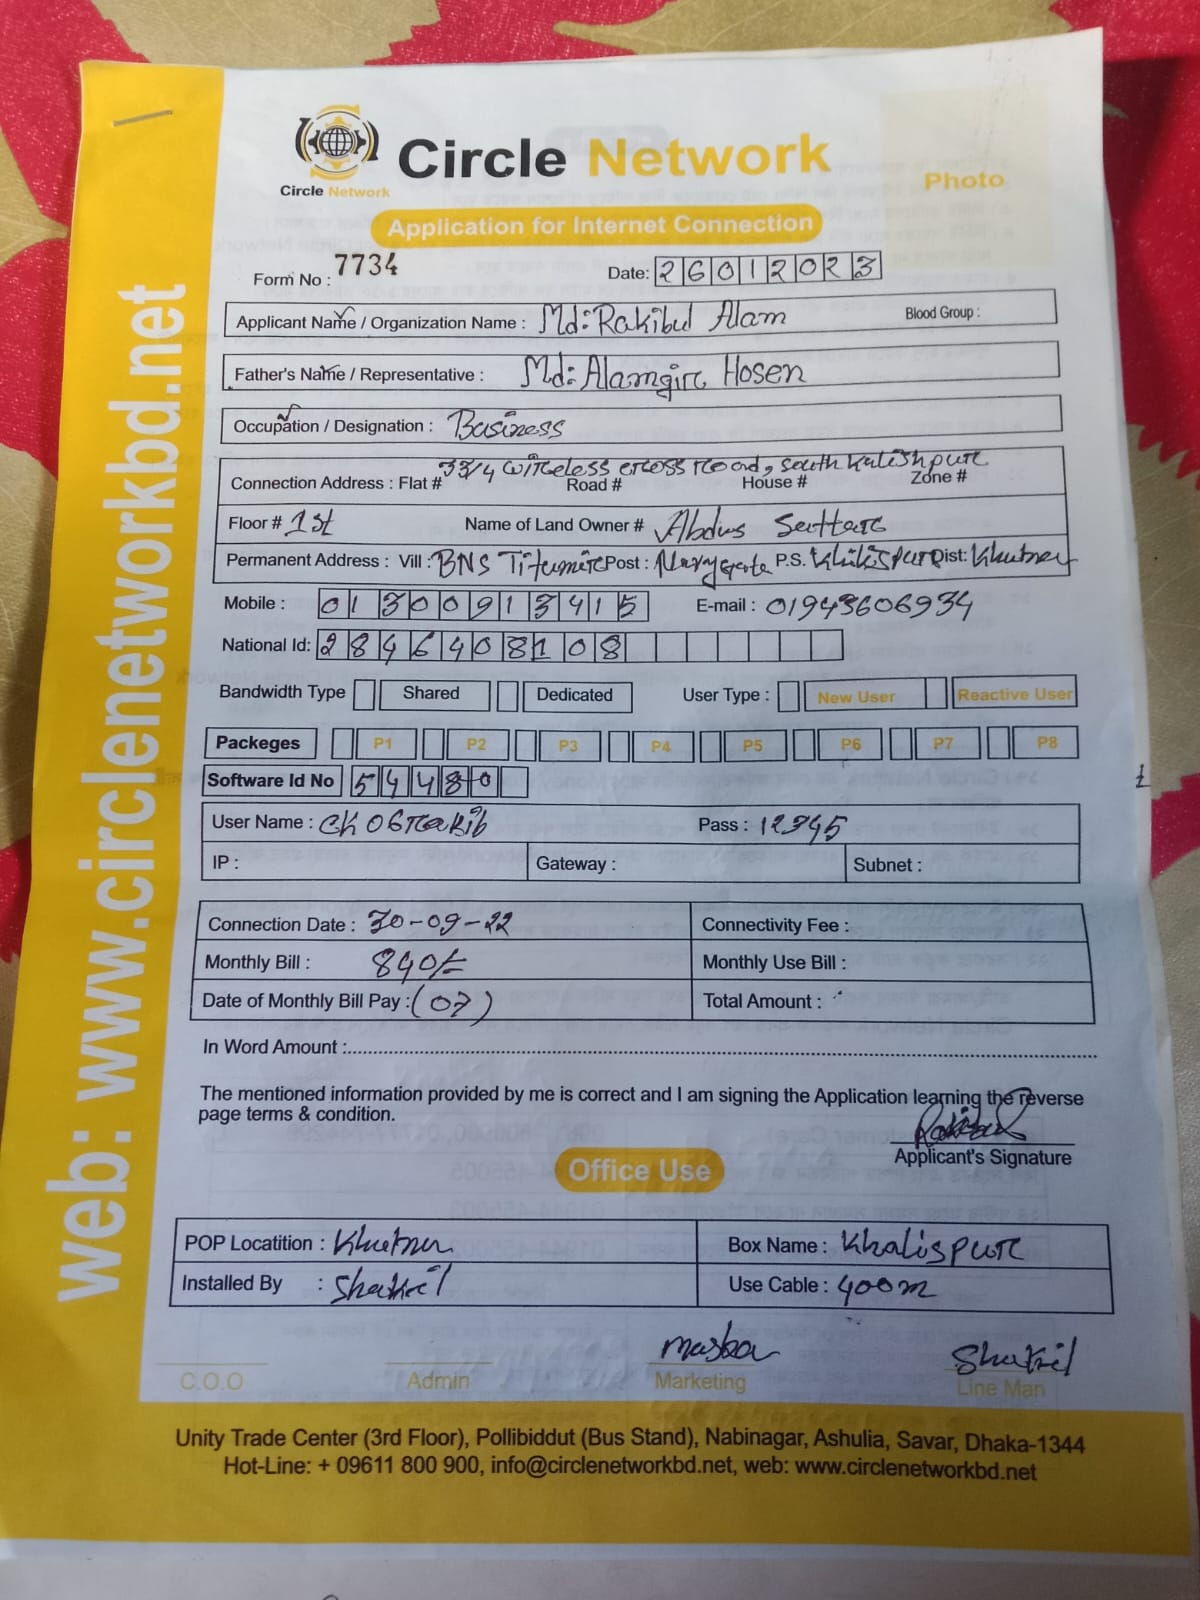 Circle Network
Circle Network
Photo
Application for Internet Connection
Form No : 7734
Date: 26012023
Applicant Name / Organization Name : Md: Rakibul Alam Blood Group :
Father's Name / Representative : Md: Alamgir Hosen
Occupation / Designation : Business
Connection Address : Flat # 33/4 wireless cross road, south kalishpur Road # House # Zone #
Floor # 1st Name of Land Owner # Abdus Sattar
Permanent Address : Vill : BNS Titumir Post : Navygate P.S. Dist:
Mobile : 01300913415 E-mail : 01943606934
National Id: 2846408108
Bandwidth Type Shared Dedicated User Type : New User Reactive User
Packeges P1 P2 P3 P4 P5 P6 P7 P8
Software Id No 54480
User Name : Pass : 12345
IP : Gateway : Subnet :
Connection Date : 30-09-22 Connectivity Fee :
Monthly Bill : 840/= Monthly Use Bill :
Date of Monthly Bill Pay : (07) Total Amount :
In Word Amount :
The mentioned information provided by me is correct and I am signing the Application learning the reverse
page terms & condition.
Rakibul
Applicant's Signature
Office Use
POP Locatition : Box Name : Khalispur
Installed By : Shakil Use Cable : 400m
Shakil
C.O.O Admin Marketing Line Man
Unity Trade Center (3rd Floor), Pollibiddut (Bus Stand), Nabinagar, Ashulia, Savar, Dhaka-1344
Hot-Line: + 09611 800 900, info@circlenetworkbd.net, web: www.circlenetworkbd.net
web: www.circlenetworkbd.net